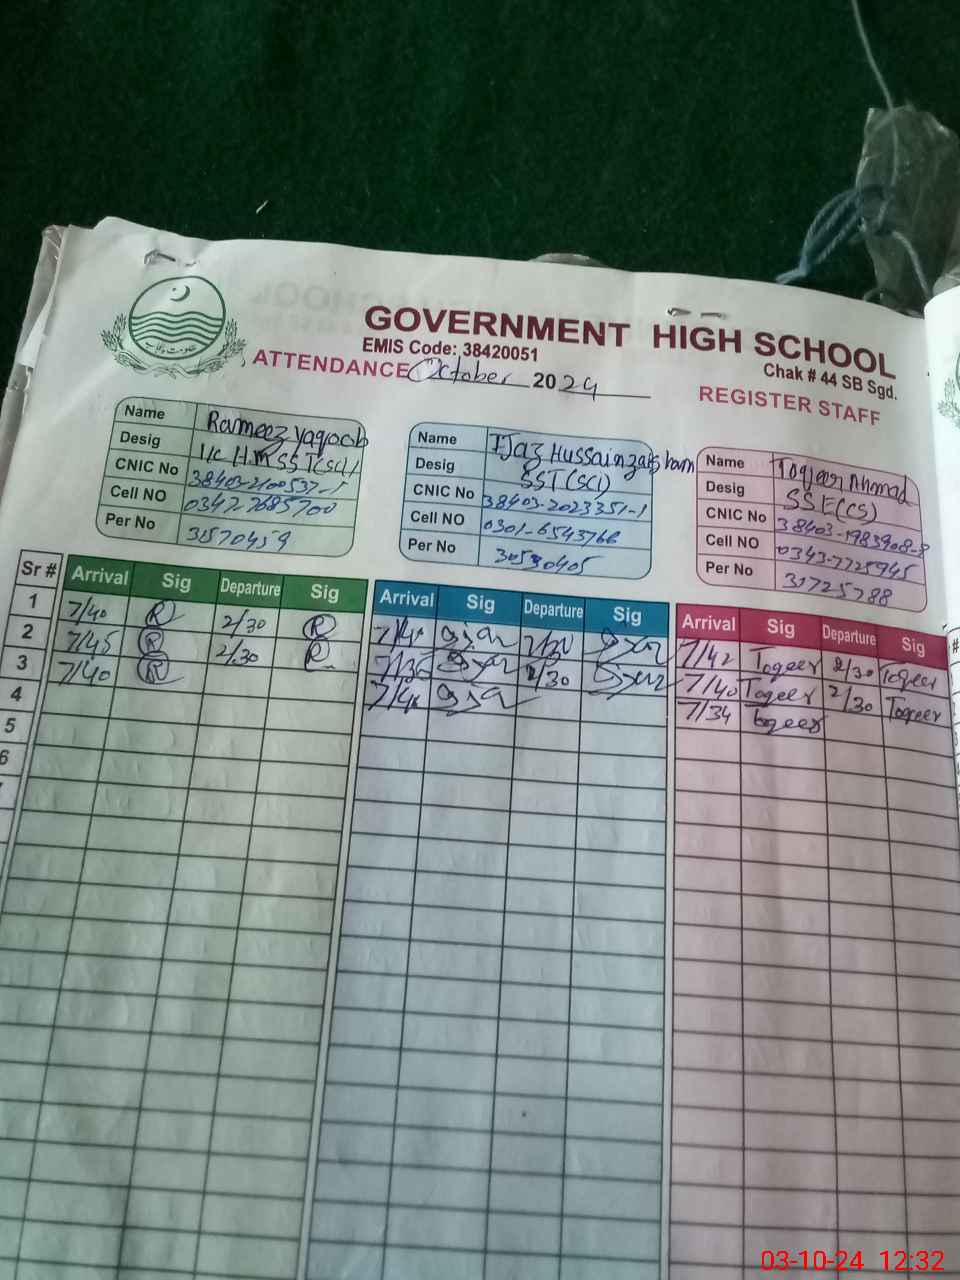 GOVERNMENT HIGH SCHOOL
EMIS Code: 38420051
Chak # 44 SB Sgd.
ATTENDANCE October 2024
REGISTER STAFF
Name Rameez Yaqoob
Desig I/C H.M SST(SCI)
CNIC No 38403-2100537-1
Cell NO 0347-7685700
Per No 31570459
Name Ijaz Hussain
Desig SST(SCI)
CNIC No 38403-2023351-1
Cell NO 0301-6543766
Per No 30530405
Name Toqeer Ahmad
Desig SSE(CS)
CNIC No 38403-1983908-3
Cell NO 0343-7725945
Per No 31725788
Sr # Arrival Sig Departure Sig Arrival Sig Departure Sig Arrival Sig Departure Sig
1 7/40 R 2/30 R 7/40 2/30 7/42 Toqeer 2/30 Toqeer
2 7/45 R 2/30 R 7/35 2/30 7/40 Toqeer 2/30 Toqeer
3 7/40 R 7/40 7/34 Toqeer
4
5
6
03-10-24 12:32